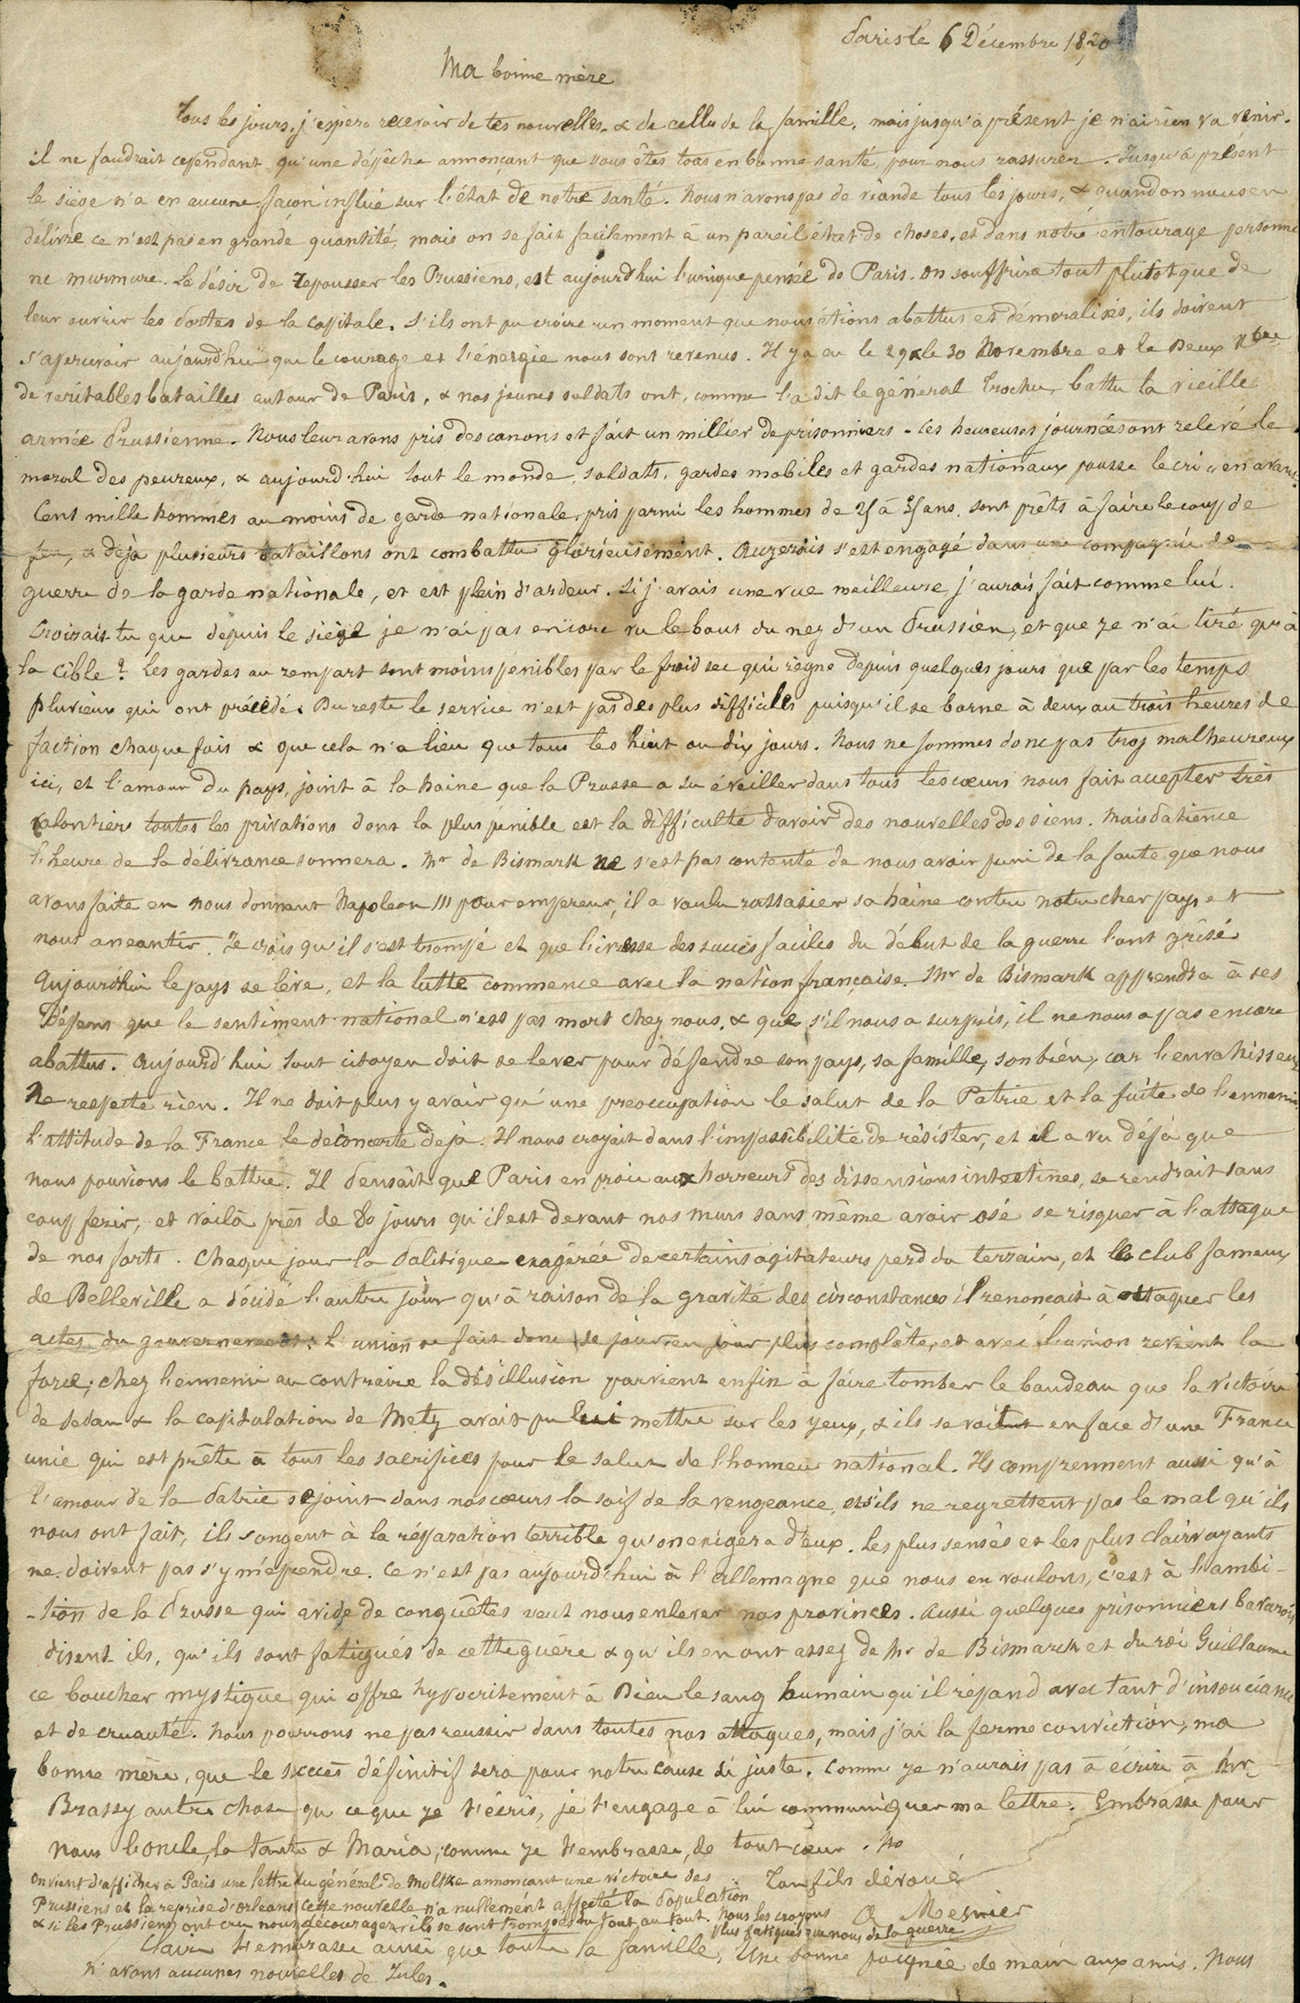 Paris le 6 Décembre 1870
Ma bonne mère
Tous les jours, j'espère recevoir de tes nouvelles, & de celles de la famille, mais jusqu'à présent je n'ai rien vu venir.
il ne faudrait cependant qu'une dépêche annonçant que vous êtes tous en bonne santé, pour nous rassurer. Jusqu'à présent
le siège n'a en aucune façon influé sur l'état de notre santé. Nous n'avons pas de viande tous les jours, & quand on nous en
délivre ce n'est pas en grande quantité, mais on se fait facilement à un pareil état de choses, et dans notre entourage personne
ne murmure. Le désir de repousser les Prussiens, est aujourd'hui l'unique pensée de Paris. on souffrira tout plutot que de
leur ouvrir les portes de la capitale. S'ils ont pu croire un moment que nous étions abattus et démoralisés, ils doivent
s'apercevoir aujourd'hui que le courage et l'énergie nous sont revenus. Il y a eu le 29 & le 30 Novembre et le Deux Xbre
de veritables batailles autour de Paris, & nos jeunes soldats ont, comme l'a dit le général Trochu, battu la vieille
armée Prussienne. Nous leur avons pris des canons et fait un millier de prisonniers - Ces heureuses journées ont relevé le
moral des peureux, & aujourd'hui tout le monde, soldats, gardes mobiles et gardes nationaux pousse le cri "en avant".
Cent mille hommes au moins de garde nationale, pris parmi les hommes de 25 à 35 ans, sont prêts à faire le coup de
feu, & déjà plusieurs bataillons ont combattu glorieusement. Auzerais s'est engagé dans une compagnie de
guerre de la garde nationale, et est plein d'ardeur. Si j'avais une vue meilleure j'aurais fait comme lui.
Croirais tu que depuis le siège je n'ai pas encore vu le bout du nez d'un Prussien, et que je n'ai tiré qu'à
la cible? Les gardes au rempart sont moins penibles par le froid sec qui règne depuis quelques jours que par les temps
pluvieux qui ont précédé. Du reste le service n'est pas des plus difficiles puisqu'il se borne à deux ou trois heures de
faction chaque fois & que cela n'a lieu que tous les huit ou dix jours. Nous ne sommes donc pas trop malheureux
ici, et l'amour du pays, joint à la haine que la Prusse a su éveiller dans tous les cœurs nous fait accepter très
volontiers toutes les privations dont la plus pénible est la difficulté d'avoir des nouvelles des siens. Mais Patience
l'heure de la délivrance sonnera. Mr de Bismark ne s'est pas contenté de nous avoir puni de la faute que nous
avons faite en nous donnant Napoleon III pour empereur, il a voulu rassasier sa haine contre notre cher pays et
nous aneantir. Je crois qu'il s'est trompé et que l'ivresse des succès faciles du début de la guerre l'ont grisé
Aujourd'hui le pays se lève, et la lutte commence avec la nation française. Mr de Bismark apprendra à ses
Dépens que le sentiment national n'est pas mort chez nous, & que s'il nous a surpris, il ne nous a pas encore
abattus. Aujourd'hui tout citoyen doit se lever pour défendre son pays, sa famille, son bien, car l'envahisseur
Ne respecte rien. Il ne doit plus y avoir qu'une preoccupation le salut de la Patrie et la fuite de l'ennemi
L'attitude de la France le déconcerte déjà. Il nous croyait dans l'impossibilité de résister, et il a vu déjà que
nous pouvions le battre. Il Pensait que Paris en proie aux horreurs des dissensions intestines, se rendrait sans
coup ferir, et voilà près de 80 jours qu'il est devant nos murs sans même avoir osé se risquer à l'attaque
de nos forts. Chaque jour la Politique exagérée de certains agitateurs perd du terrain, et le club fameux
de Belleville a décidé l'autre jour qu'à raison de la gravité des circonstances il renonçait à attaquer les
actes du gouvernement. L'union se fait donc de jour en jour plus complète, et avec l'union revient la
force; chez l'ennemi au contraire la désillusion parvient enfin à faire tomber le bandeau que la victoire
de Sedan & la capitulation de Metz avait pu lui mettre sur les yeux, & ils se voient en face d'une France
unie qui est prête à tous les sacrifices pour le salut de l'honneur national. Ils comprennent aussi qu'à
l'amour de la Patrie se joint dans nos cœurs la soif de la vengeance, et s'ils ne regrettent pas le mal qu'ils
nous ont fait, ils songent à la réparation terrible qu'on exigera d'eux. Les plus sensés et les plus clairvoyants
ne doivent pas s'y méprendre. Ce n'est pas aujourd'hui à l'Allemagne que nous en voulons, c'est à l'ambi-
-tion de la Prusse qui avide de conquêtes veut nous enlever nos provinces. Aussi quelques prisonniers bavarois
disent-ils, qu'ils sont fatigués de cette guerre & qu'ils en ont assez de Mr de Bismarck et du roi Guillaume
ce boucher mystique qui offre hypocritement à Dieu le sang humain qu'il répand avec tant d'insouciance
et de cruauté. Nous pourrons ne pas reussir dans toutes nos attaques, mais j'ai la ferme conviction, ma
bonne mère, que le succès définitif sera pour notre cause si juste. Comme je n'aurais pas à écrire à Mr
Brassy autre chose que ce que je t'écris, je t'engage à lui communiquer ma lettre. Embrasse pour
nous l'oncle, la tante & Maria, comme je t'embrasse, de tout cœur.
Ton fils dévoué
On vient d'afficher à Paris une lettre du général de Moltke annonçant une victoire des
Prussiens et la reprise d'orleans, cette nouvelle n'a nullement affecté la Population
& si les Prussiens ont cru nous décourager, ils se sont trompés du tout au tout. Nous les croyons
plus fatigués que nous de la guerre
A Mesnier
Claire t'embrasse ainsi que toute la famille, Une bonne poignée de main aux amis. Nous
n'avons aucunes nouvelles de Jules.